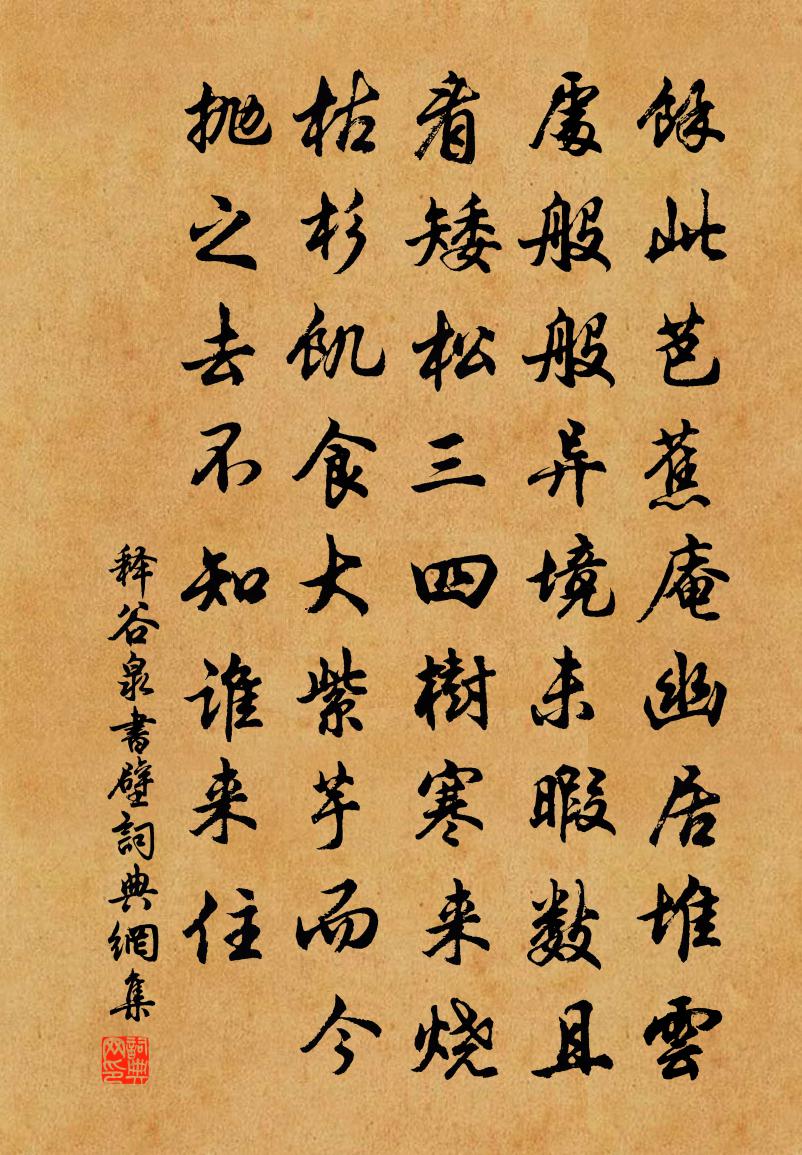 餘此芭蕉庵幽居堆雲
處般般异境未暇数且
看矮松三四樹寒来烧
枯杉饥食大紫芋而今
抛之去不知谁来住
释谷泉書壁詞典網集
詞典网印